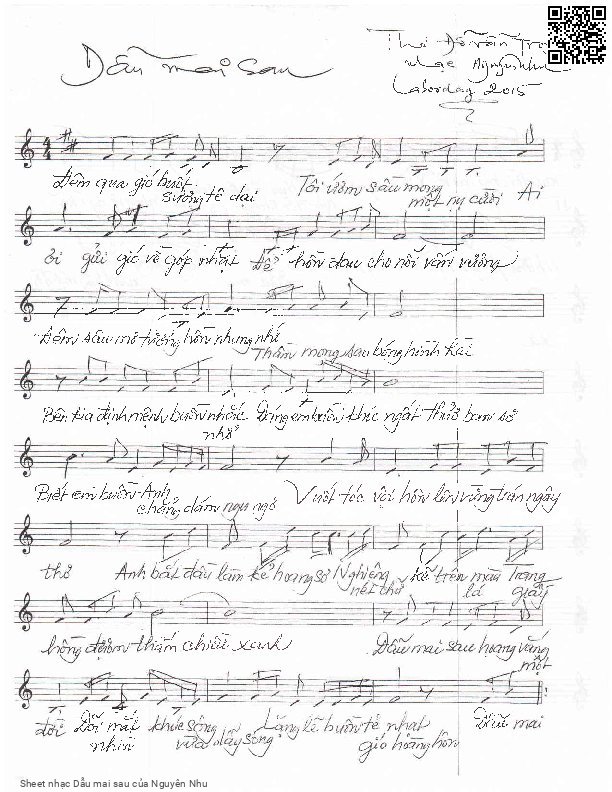 Dẫu mai sau
Thơ
nhạc Nguyên Nhu
Laborday 2015
Đêm qua gió buốt sương tê dại Tôi ướm sầu mong một nụ cười Ai
ơi gửi gió về góp nhặt Để hồn đau cho nỗi vấn vương
Đêm sầu mơ tưởng hồn nhung nhớ Thầm mong sao bóng hình
Bên kia định mệnh buồn nhắc nhở Đừng em buồn khúc ngát thuở ban sơ
Biết em buồn Anh chẳng dám ngu ngơ Vuốt tóc vội hôn lên vừng trán ngây
thơ Anh bắt đầu làm kẻ hoang sơ Nghiêng nét thơ kẽ trên màu lá Trang giấy
hồng đượm thắm chiều xanh Dẫu mai sau hoang vắng một
đời Dõi mắt nhìn khúc sông vừa dậy sóng Lặng lẽ buồn tẻ nhạt gió hoàng hôn Dẫu mai
Sheet nhạc Dẫu mai sau của Nguyên Nhu